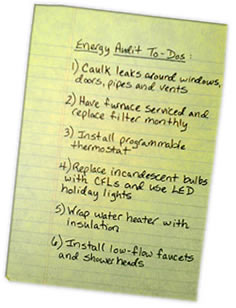 Energy Audit To-Dos:
1) Caulk leaks around windows,
doors, pipes and vents
2) Have furnace serviced and
replace filter monthly
3) Install programmable
thermostat
4) Replace incandescent bulbs
with CFLs and use LED
holiday lights
5) Wrap water heater with
insulation
6) Install low-flow faucets
and showerheads